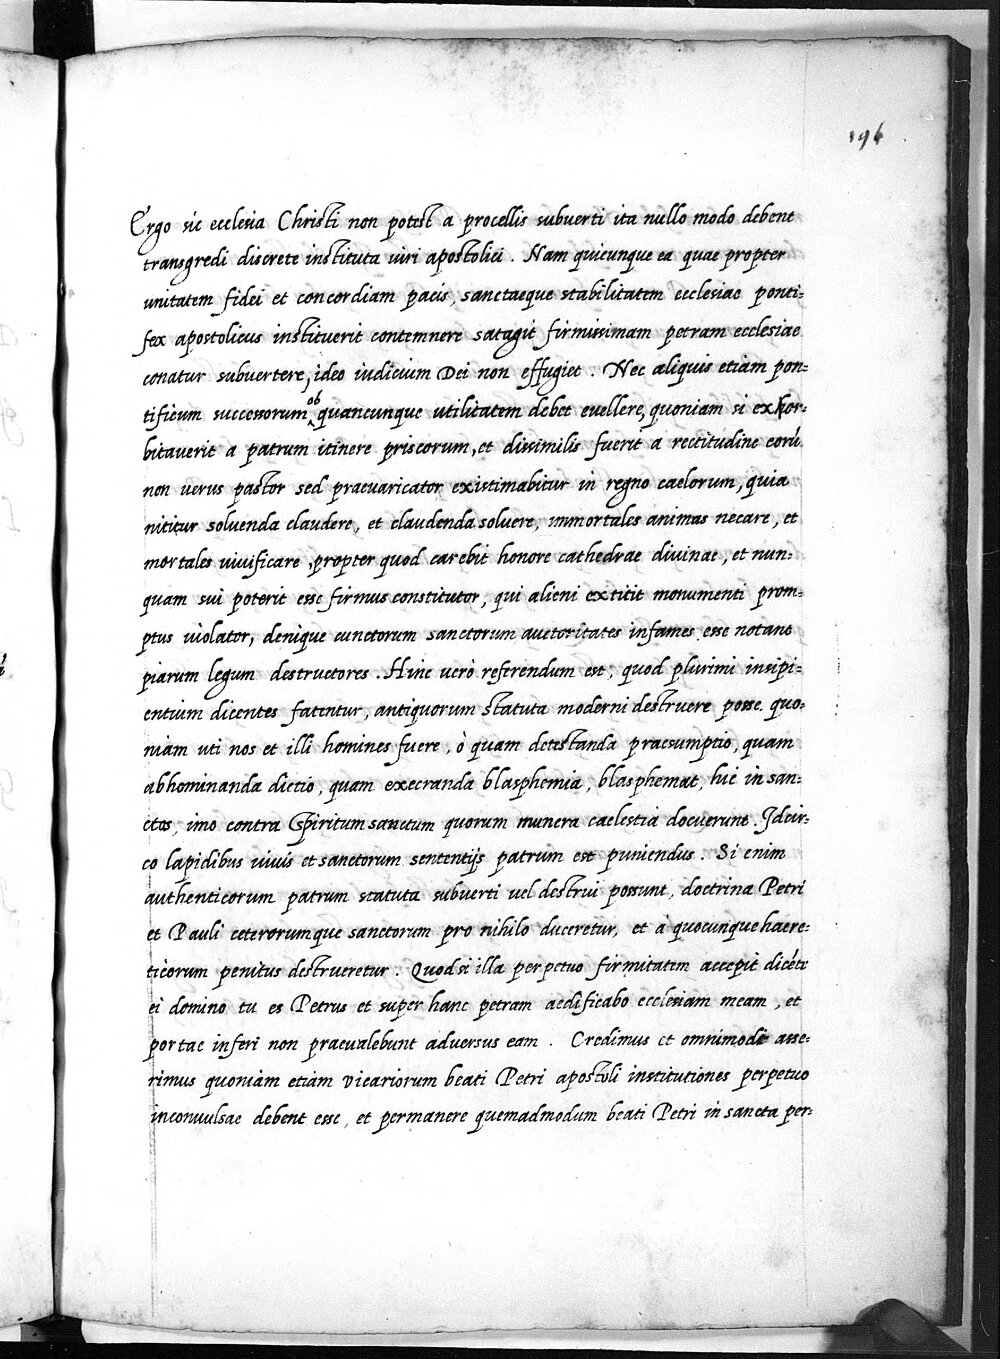 196
Ergo sic ecclesia Christi non potest a procellis subuerti ita nullo modo debent
transgredi discrete instituta uiri apostolici. Nam quicunque ea quae propter
unitatem fidei et concordiam pacis, sanctaeque stabilitatem ecclesiae ponti=
fex apostolicus instituerit contemnere satagit firmissimam petram ecclesiae
conatur subuertere, ideo iudicium Dei non effugiet. Nec aliquis etiam pon=
tificum successorum ob quancunque utilitatem debet euellere, quoniam si exhor=
bitauerit a patrum itinere priscorum, et dissimilis fuerit a rectitudine eorũ
non uerus pastor sed praeuaricator existimabitur in regno caelorum, quia
nititur soluenda claudere, et claudenda soluere, immortales animas necare, et
mortales uiuificare, propter quod carebit honore cathedrae diuinae, et nun=
quam sui poterit esse firmus constitutor, qui alieni extitit monumenti prom=
ptus uiolator, denique cunctorum sanctorum auctoritates infames esse notant
piarum legum destructores. Hinc uerò referendum est, quod plurimi insipi=
entium dicentes fatentur, antiquorum statuta moderni destruere posse. quo=
niam uti nos et illi homines fuere, ò quam detestanda praesumptio, quam
abhominanda dictio, quam execranda blasphemia, blasphemat, hic in san=
ctos, imo contra Spiritum sanctum quorum munera caelestia docuerunt. Idcir=
co lapidibus uiuis et sanctorum sententijs patrum est puniendus. Si enim
authenticorum patrum statuta subuerti uel destrui possunt, doctrina Petri
et Pauli ceterorumque sanctorum pro nihilo duceretur, et à quocunque haere=
ticorum penitus destrueretur. Quod si illa perpetuo firmitatem accepit dicẽte
ei domino tu es Petrus et super hanc petram aedificabo ecclesiam meam, et
portae inferi non praeualebunt aduersus eam. Credimus et omnimodè asse=
rimus quoniam etiam Vicariorum beati Petri apostoli institutiones perpetuo
inconuulsae debent esse, et permanere quemadmodum beati Petri in sancta per=